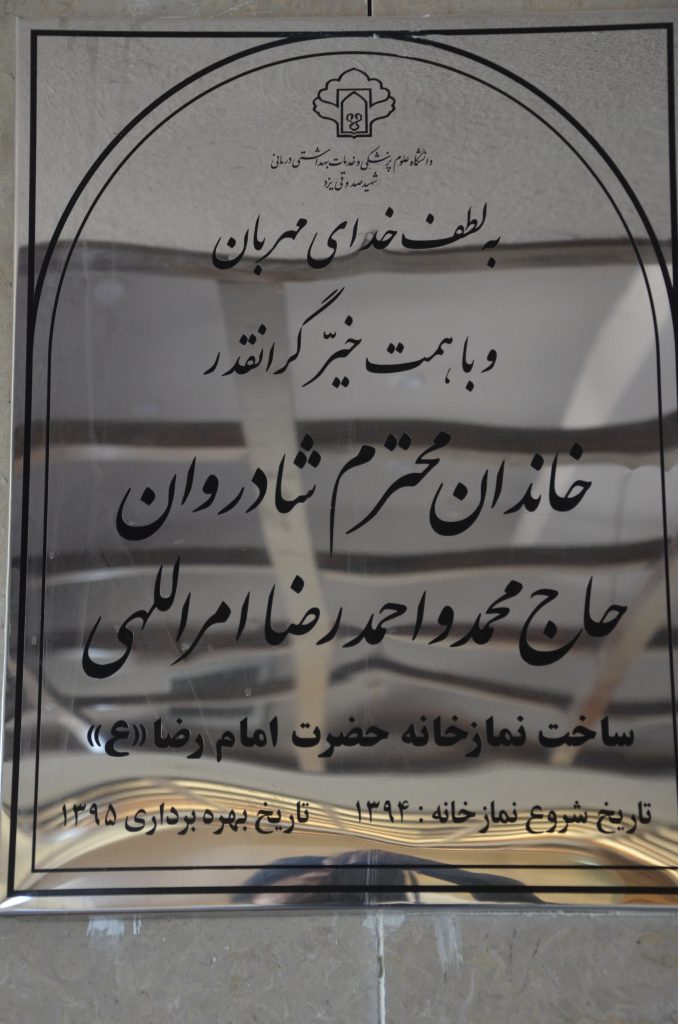 دانشگاه علوم پزشکی و خدمات بهداشتی درمانی
شهید صدوقی یزد
به لطف خدای مهربان
و با همت خیّر گرانقدر
خاندان محترم شادروان
حاج محمد و احمد رضا امراللهی
ساخت نمازخانه حضرت امام رضا «ع»
تاریخ شروع نمازخانه : ۱۳۹۴ تاریخ بهره برداری ۱۳۹۵